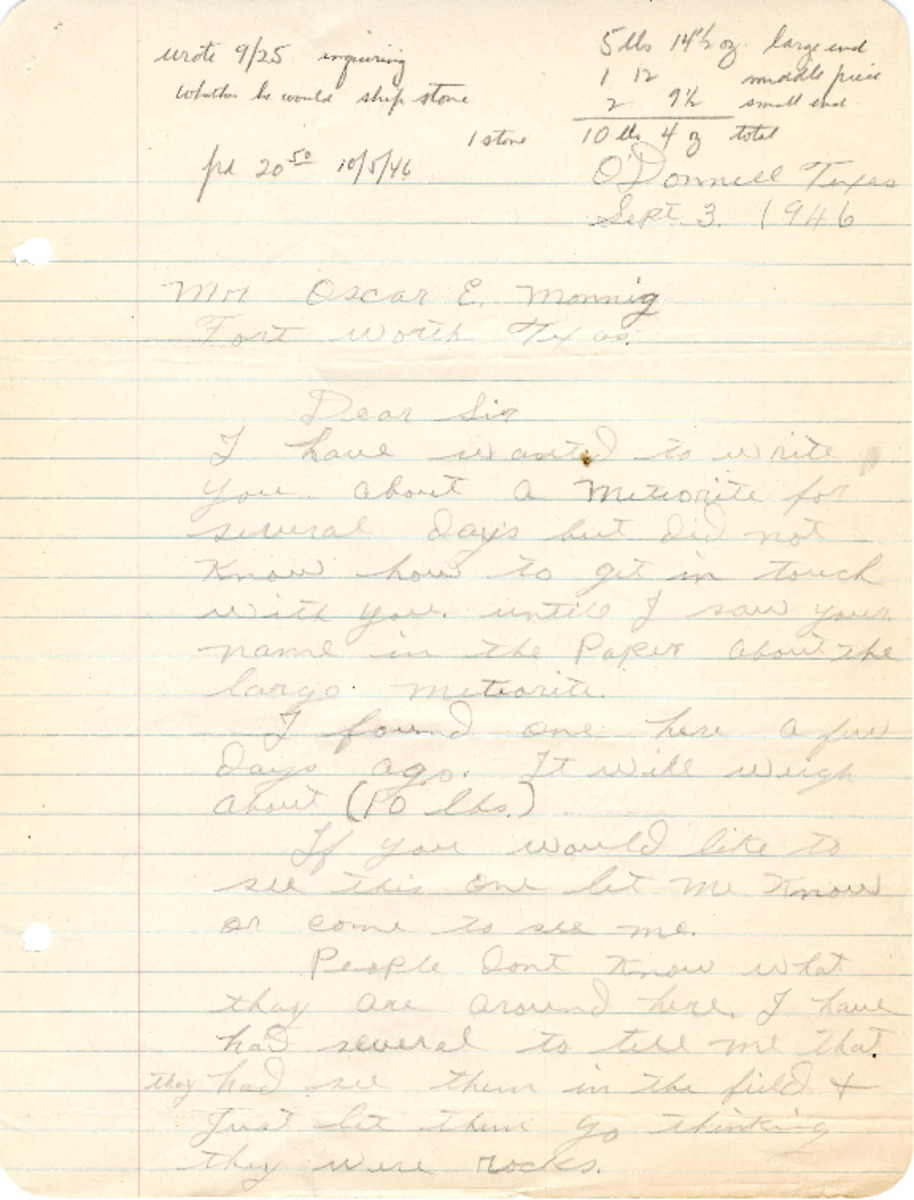 wrote 9/25 inquiring
whether he would ship stone
pd 20 50 10/5/46
5 lbs 14 1/2 oz large end
1 12 middle piece
2 9 1/2 small end
1 stone 10 lbs 4 oz total
O'Donnell Texas
Sept 3. 1946
Mr Oscar E. Monnig
Fort Worth Texas.
Dear Sir
I have wanted to write
you about a Meteorite for
several days but did not
Know how to get in touch
with you. untill I saw your
name in the Paper about the
large meteorite.
I found one here a few
days ago. It will weigh
about (10 lbs.)
If you would like to
see this one let me Know
or come to see me.
People dont Know what
thay are around here. I have
had several to tell me that
they had see them in the field +
Just let them go thinking
they were rocks.